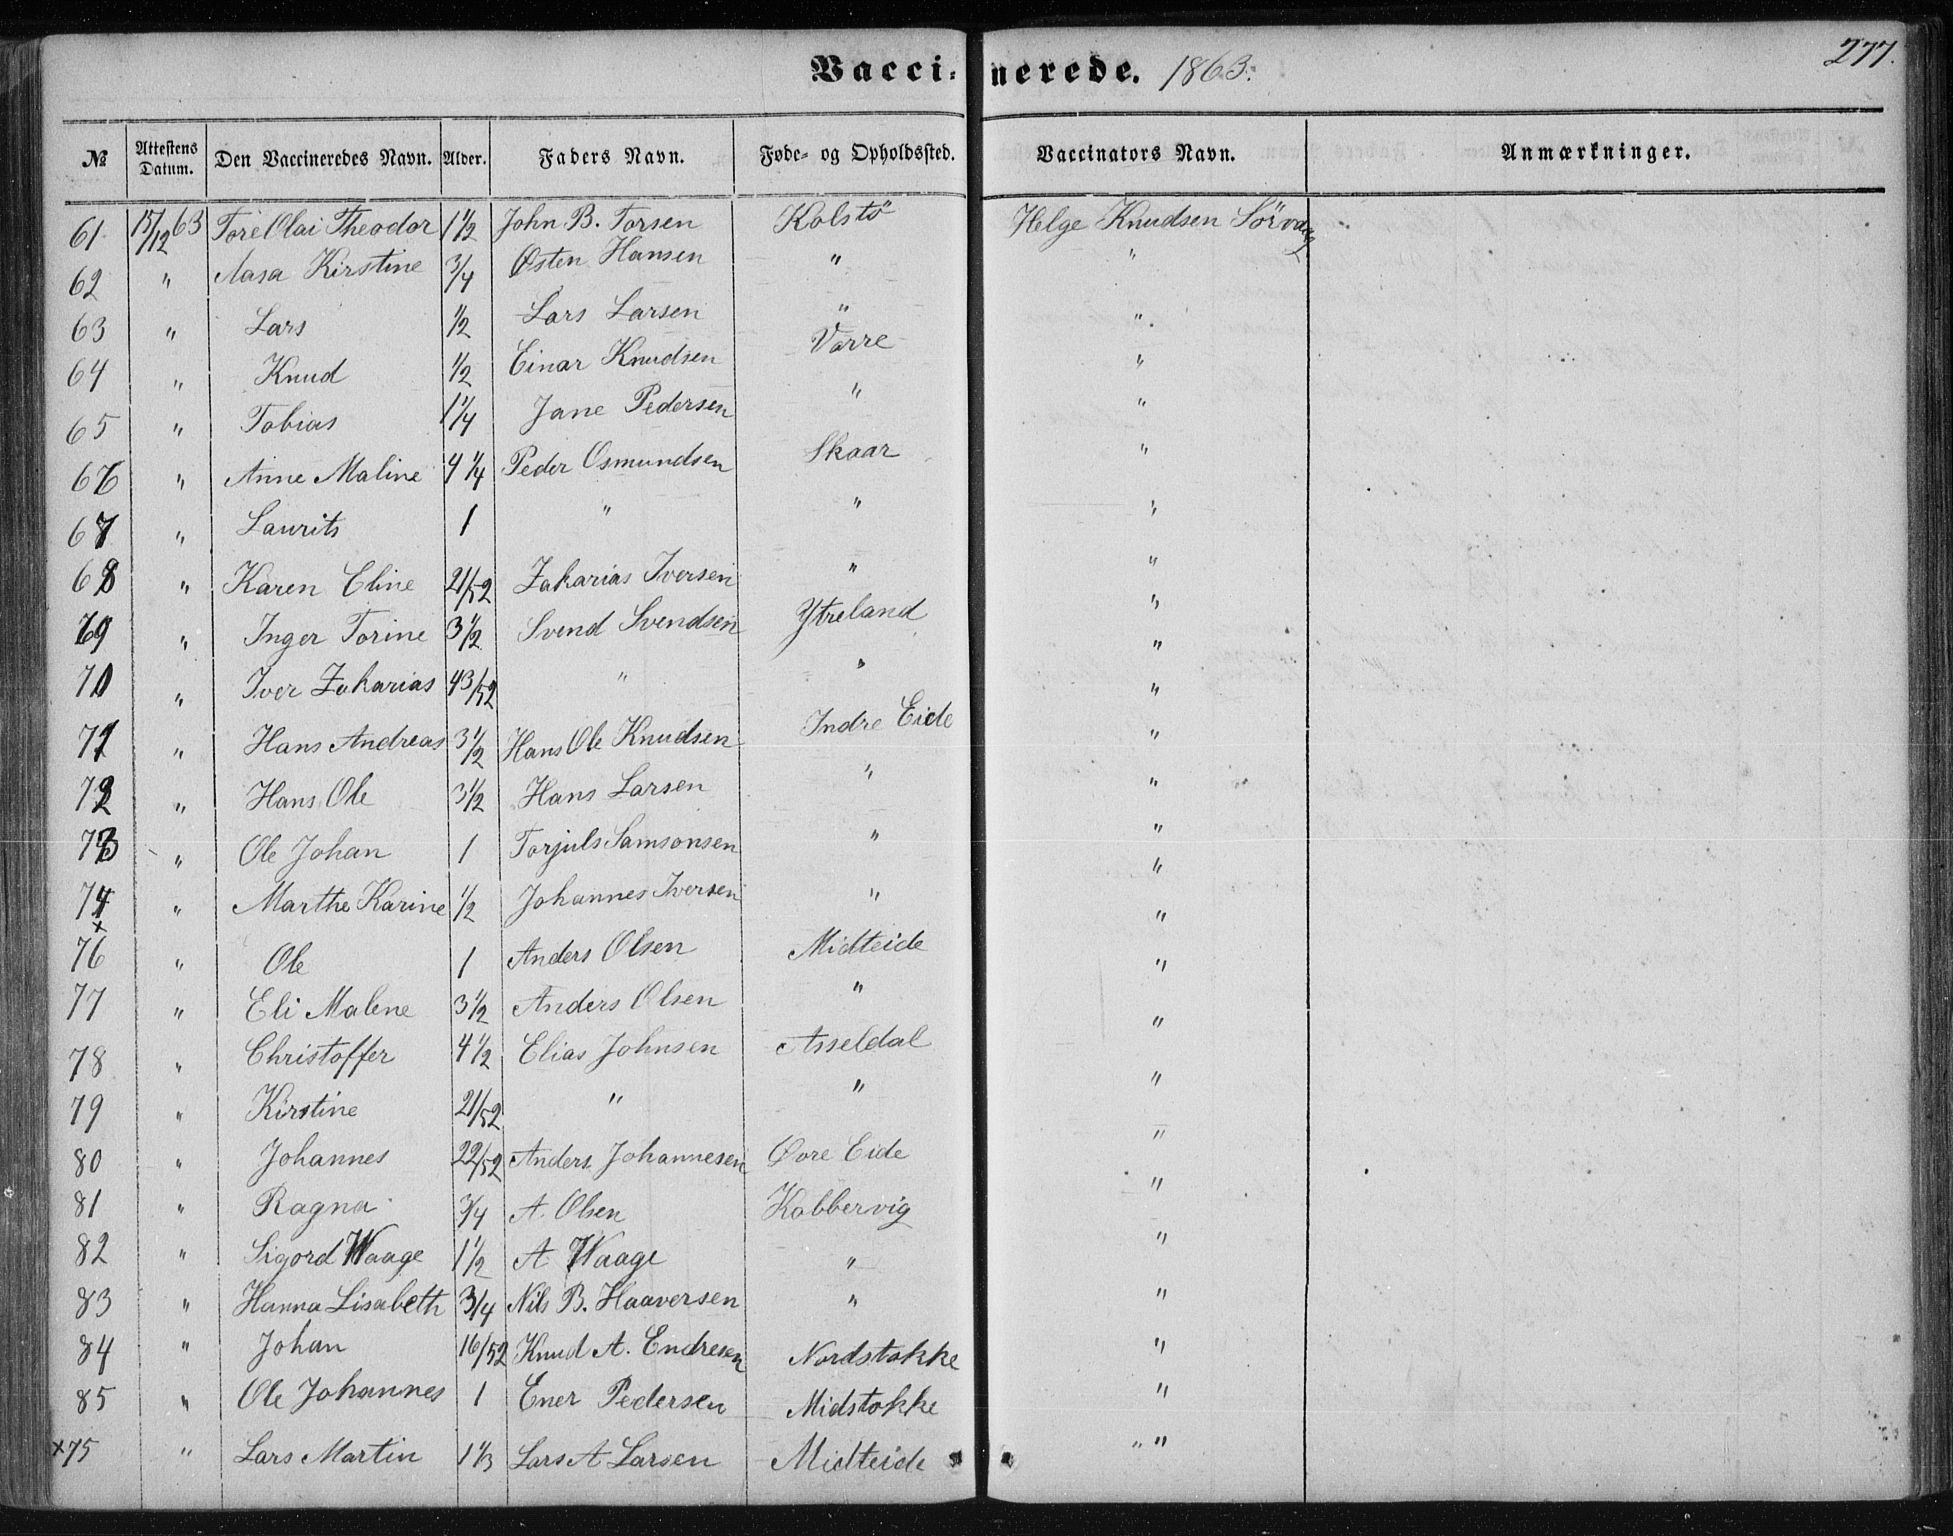 277.
Vaccinerede. 1863.
№ Attestens Datum. Den Vaccineredes Navn. Alder. Faders Navn. Føde- og Opholdssted. Vaccinators Navn. Anmærkninger.
61. 15/12 63 Tore Olai Theodor 1 1/2 John B. Torsen Kolstö Helge Knudsen Sörvaag
62 " Aasa Kirstine 3/4 Østen Hansen " "
63 " Lars 1/2 Lars Larsen " "
64 " Knud 1/2 Einar Knudsen Vorre "
65 " Tobias 1 1/4 Jane Pedersen " "
66 " Anne Maline 4 1/4 Peder Osmundsen Skaar "
67 " Laurits 1 " " "
68 " Karen Eline 21/52 Zakarias Iversen " "
69 " Inger Torine 3 1/2 Svend Svendsen Ytreland "
70 " Iver Zakarias 43/52 " " "
71 " Hans Andreas 3 1/2 Hans Ole Knudsen Indre Eide "
72 " Hans Ole 3 1/2 Hans Larsen " "
73 " Ole Johan 1 Torjuls Samsonsen " "
74 " Marthe Karine 1/2 Johannes Iversen " "
x
76 " Ole 1 Anders Olsen Midteide "
77 " Eli Malene 3 1/2 Anders Olsen " "
78 " Christoffer 4 1/2 Elias Johnsen Asseldal "
79 " Kirstine 21/52 " " "
80 " Johannes 22/52 Anders Johannesen Øvre Eide "
81 " Ragna 3/4 A. Olsen Kobbervig "
82 " Sigord Waage 1 1/2 A Waage " "
83 " Hanna Lisabeth 3/4 Nils B. Haaversen " "
84 " Johan 16/52 Knud A. Endresen Nordstokke "
85 " Ole Johannes 1 Ener Pedersen Midstokke "
x75 " Lars Martin 1 1/3 Lars A Larsen Midteide "